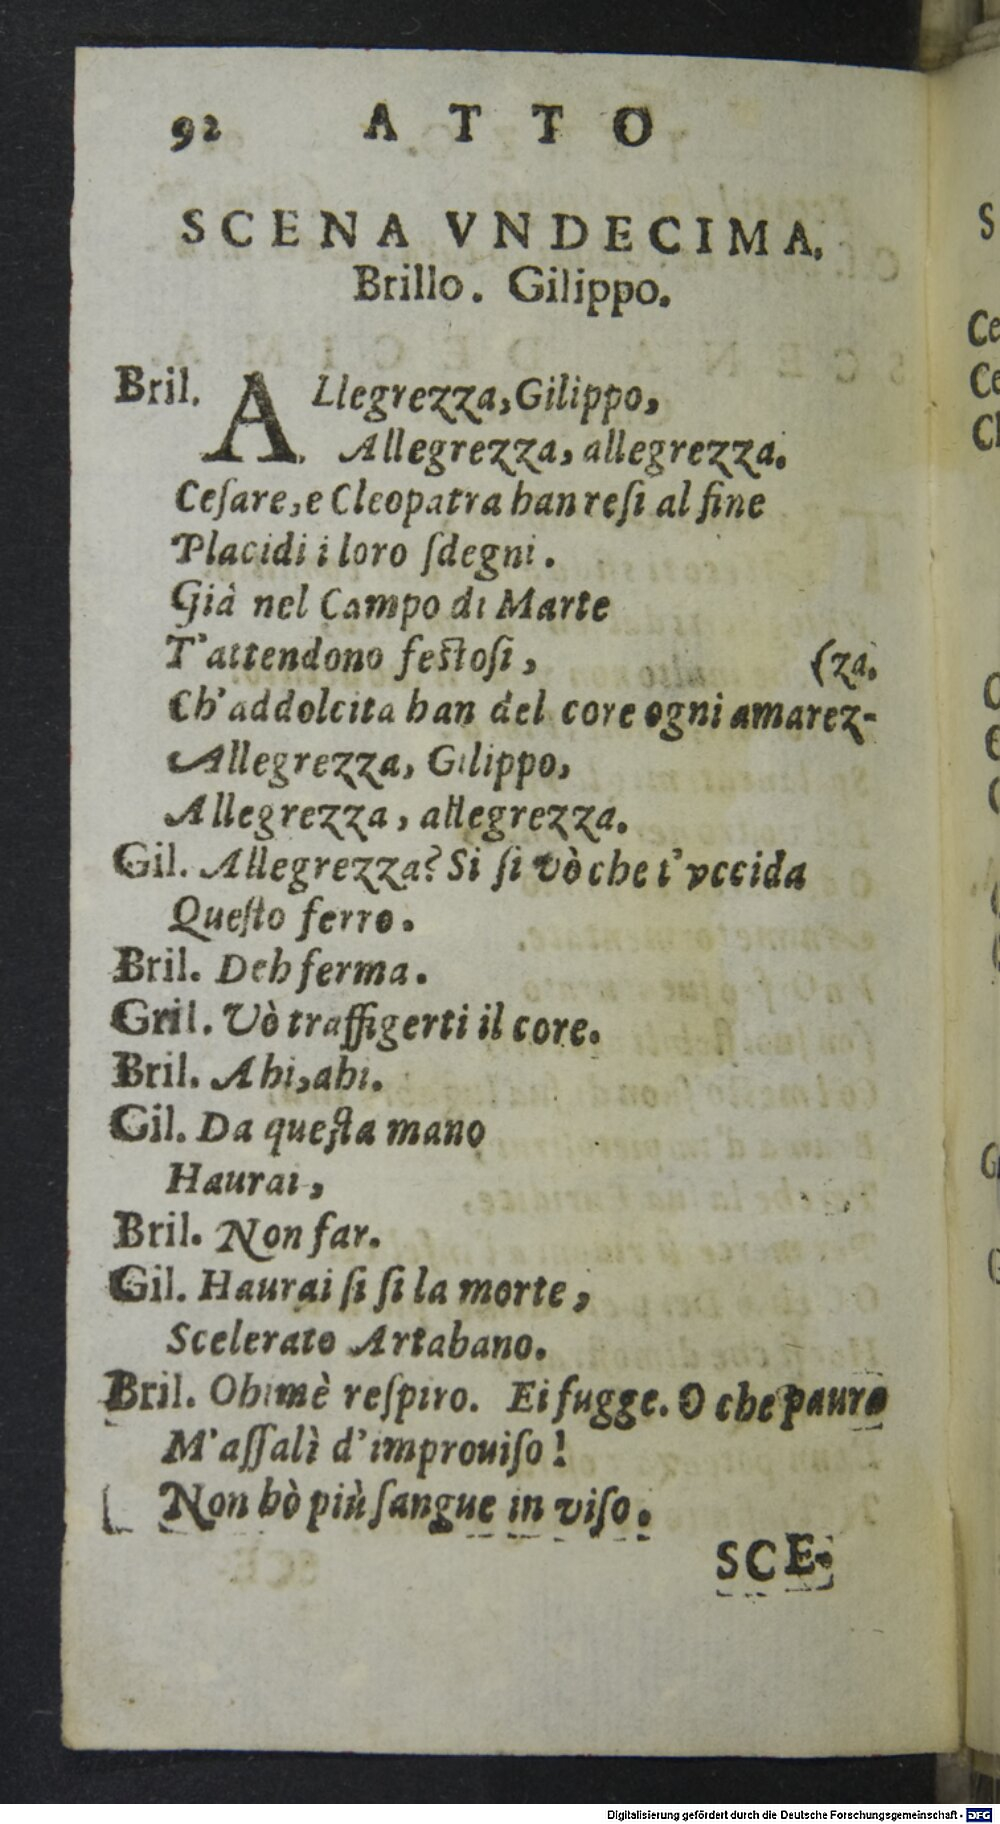 92 ATTO
SCENA VNDECIMA.
Brillo. Gilippo.
Bril. ALlegrezza, Gilippo,
Allegrezza, allegrezza.
Ceſare, e Cleopatra han reſi al fine
Placidi i loro ſdegni.
Già nel Campo di Marte
T'attendono feſtoſi,
(za.
Ch'addolcita han del core ogni amarez-
Allegrezza, Gilippo,
Allegrezza, allegrezza.
Gil. Allegrezza? Si ſi vò che t'vccida
Queſto ferro.
Bril. Deh ferma.
Gril. Vò traffigerti il core.
Bril. Ahi, ahi.
Gil. Da queſta mano
Haurai,
Bril. Non far.
Gil. Haurai ſi ſi la morte,
Scelerato Artabano.
Bril. Ohimè reſpiro. Ei fugge. O che paura
M'aſſalì d'improuiſo!
Non hò più ſangue in viſo.
SCE-
S
Ce
Ce
Cl
Digitalisierung gefördert durch die Deutsche Forschungsgemeinschaft - DFG